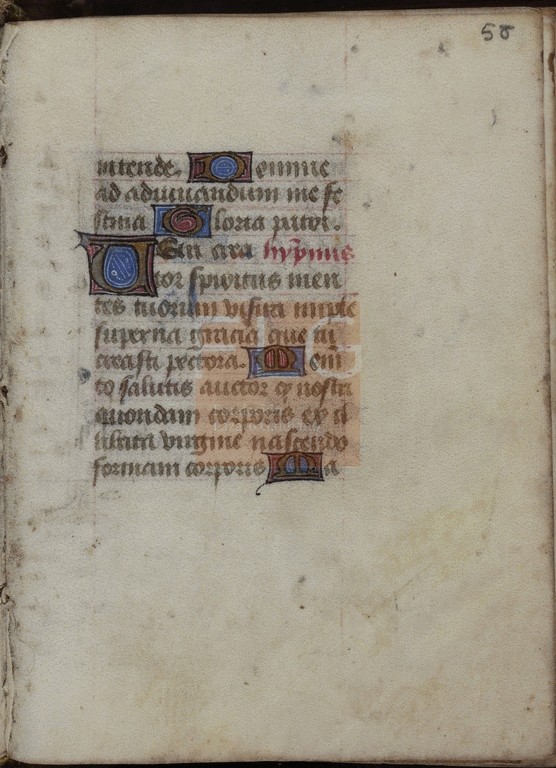 58
intende. Domine
ad adiuuandum me fe
stina Gloria patri.
Veni crea hympnus
tor spiritus men
tes tuorum visita imple
superna gracia que tu
creasti pectora. Memen
to salutis auctor q nostri
quondam corporis ex il
libata virgine nascendo
formam corporis Ma